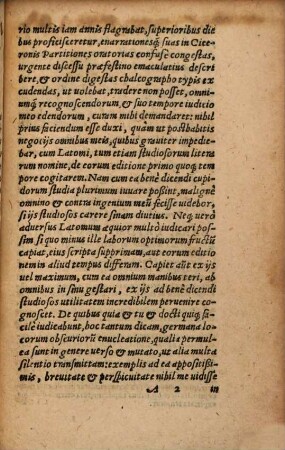 rio multis iam annis flagrabat, superioribus die
bus proficisceretur, enarrationesq́ suas in Cice
ronis Partitiones oratorias confuse congestas,
urgente discessu præfestino emaculatius descri
bere, & ordine digestas chalcographo typis ex
cudendas, ut uolebat, tradere non posset, omni
umq́ recognoscendorum, & suo tempore iuditio
meo edendorum, curam mihi demandaret: nihil
prius faciendum esse duxi, quàm ut posthabitis
negocijs omnibus meis, quibus grauiter impedie
bar, cum Latomi, tum etiam studiosorum litera
rum nomine, de eorum editione primo quoq́ tem
pore cogitarem. Nam cum ea benè dicendi cupi
dorum studia plurimum iuuare poßint, malignè
omnino & contra ingenium meũ fecisse uidebor,
si ijs studiosos carere sinam diutius. Neq́ uerò
aduersus Latomum æquior multò iudicari pos
sim si quo minus ille laborum optimorum fructũ
capiat, eius scripta supprimam, aut eorum editio
nem in aliud tempus differam. Capiet aũt ex ijs
uel maximum, cum ea omnium manibus teri, ab
omnibus in sinu gestari, ex ijs ad benè dicendi
studiosos utilitatem incredibilem peruenire co
gnoscet. De quibus quia & tu & docti quiq́ fa
cilè iudicabunt, hoc tantum dicam, germana lo
corum obscuriorũ enucleatione, qualia permul
ea sunt in genere uerso & mutato, ut alia multa
silentio transmittam: exemplis ad ea appositißi
mis, breuitate & perspicuitate nihil me uidisse
A 2 in